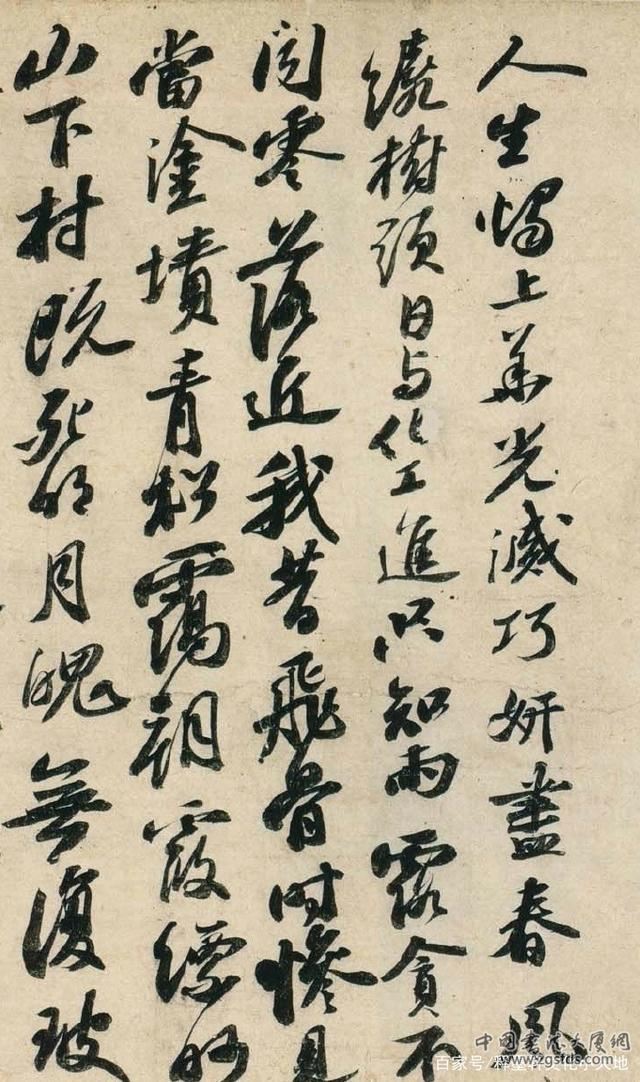 人生燭上華光滅巧妍盡春風
繞樹頭日与化工進只知雨露貪不
聞零落近我昔飛骨時慘見
當塗墳青松靄朝霞縹緲
山下村既死明月魄無復玻
中国書法大厦網
www.zgsfds.com
百家号/文化小天地